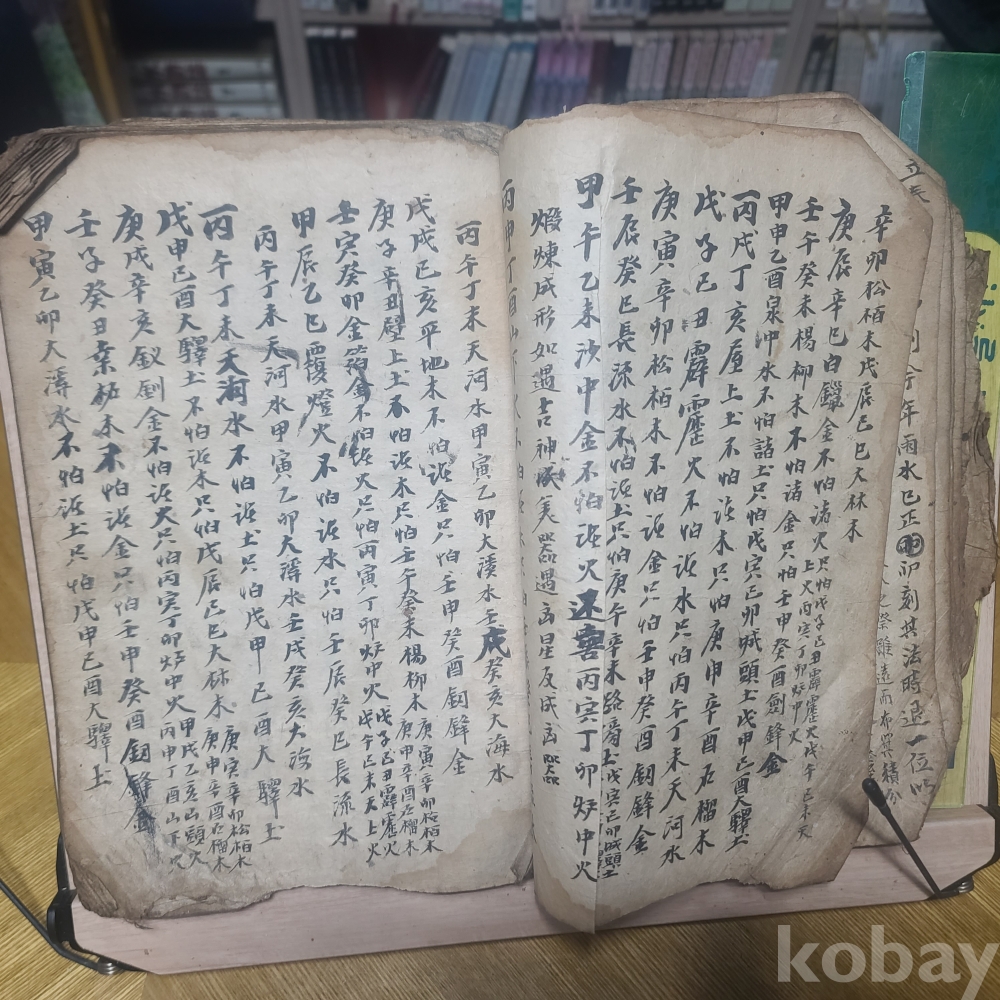 辛卯松栢木戊辰己巳大林木
庚辰辛巳白鑞金不怕諸火只怕戊子己丑霹靂火戊午己未天
上火丙寅丁卯炉中火
壬午癸未楊柳木不怕諸金只怕壬申癸酉劍鋒金
甲申乙酉泉中水不怕諸土只怕戊寅己卯城頭土戊申己酉大驛土
丙戌丁亥屋上土不怕诋木只怕庚申辛酉石榴木
戊子己丑霹靂火不怕诋水只怕丙午丁未天河水
庚寅辛卯松栢木不怕诋金只怕壬申癸酉釼鋒金
壬辰癸巳長流水不怕诋土只怕庚午辛未路傍土戊寅己卯城頭土
甲午乙未沙中金不怕诋火丙寅丁卯炉中火
煅煉成形如遇吉神成美器遇凶星反成凶器
丙申丁酉山
丙午丁未天河水甲寅乙卯大溪水壬戌癸亥大海水
戊戌己亥平地木不怕诋金只怕壬申癸酉釼鋒金
庚子辛丑壁上土不怕诋木只怕壬午癸未楊柳木庚寅辛卯松栢木
庚申辛酉石榴木
壬寅癸卯金箔金不怕诋火只怕丙寅丁卯炉中火戊子己丑霹靂火
戊午己未天上火
甲辰乙巳覆燈火不怕诋水只怕壬辰癸巳長流水
丙午丁未天河水甲寅乙卯大溪水壬戌癸亥大海水
丙午丁未天河水不怕诋土只怕戊申己酉大驛土
戊申己酉大驛土不怕诋木只怕戊辰己巳大林木庚寅辛卯松栢木
庚申辛酉石榴木
庚戌辛亥釵釧金不怕诋火只怕丙寅丁卯炉中火甲戌乙亥山頭火
丙申丁酉山下火
壬子癸丑桑柘木不怕诋金只怕壬申癸酉釼鋒金
甲寅乙卯大溪水不怕诋土只怕戊申己酉大驛土
kobay